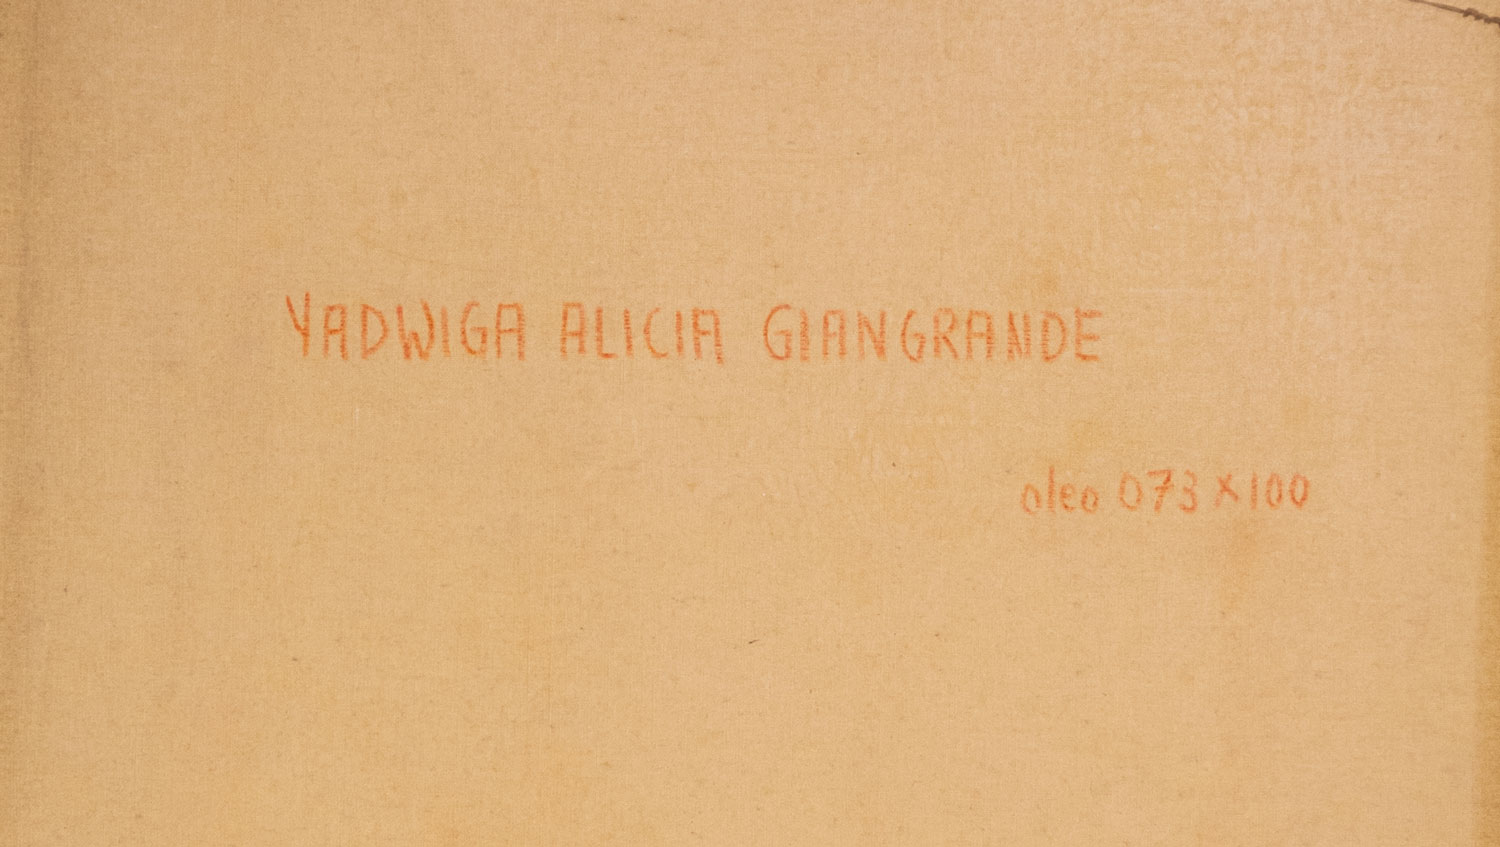 YADWIGA ALICIA GIANGRANDE
oleo 073 x 100